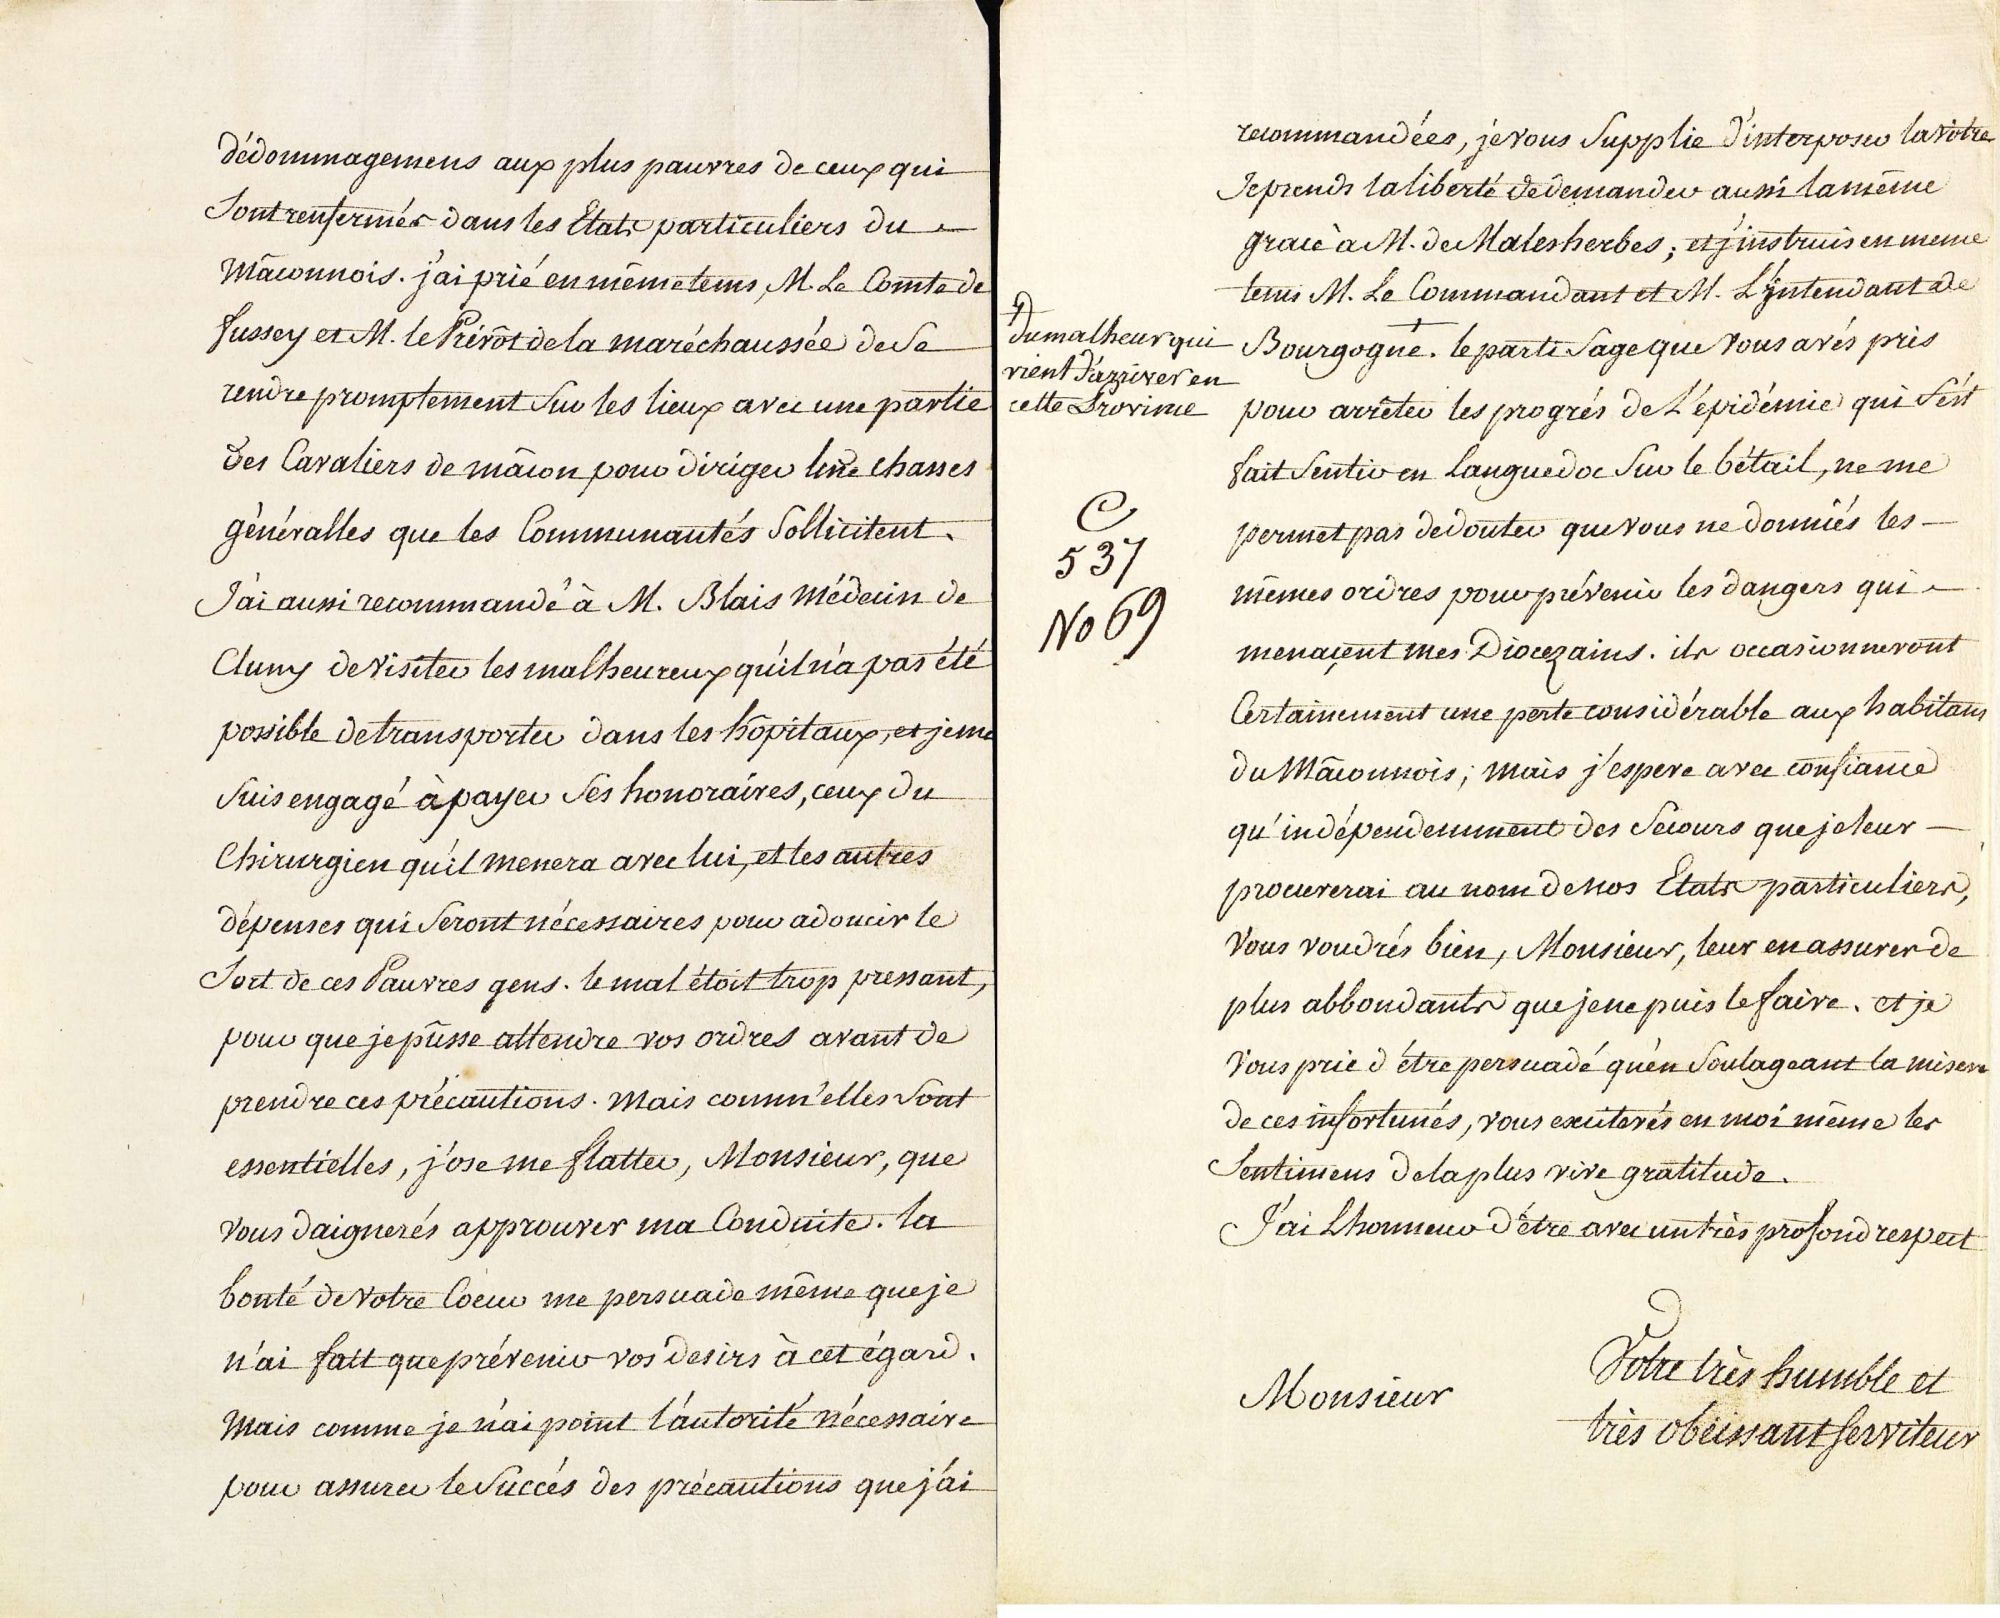 dédommagemens aux plus pauvres de ceux qui
Sont renfermés dans les Etats particuliers du
Mâconnois. j'ai prié en même tems, M. Le Comte de
fussey et M. le Prévôt de la maréchaussée de Se
rendre promptement Sur les lieux avec une partie
des Cavaliers de mâcon pour diriger les chasses
généralles que les Communautés Sollicitent.
J'ai aussi recommandé à M. Blais Médecin de
Cluny de visiter les malheureux qu'il n'a pas été
possible de transporter dans les hôpitaux, et je me
Suis engagé à payer Ses honoraires, ceux du
Chirurgien qu'il menera avec lui, et les autres
dépenses qui Seront nécessaires pour adoucir le
Sort de ces Pauvres gens. le mal étoit trop pressant,
pour que je pûsse attendre vos ordres avant de
prendre ces précautions. Mais comm'elles Sont
essentielles, j'ose me flatter, Monsieur, que
vous daignerés approuver ma Conduite. la
bonté de Votre Coeur me persuade même que je
n'ai fait que prévenir vos desirs à cet égard.
Mais comme je n'ai point l'autorité nécessaire
pour assurer le Succés des précautions que j'ai
recommandées, je vous Supplie d'interposer la vôtre
Je prends la liberté de demander aussi la même
grace à M. de Malesherbes; et j'instruis en meme
tems M. Le Commandant et M. L'jntendant de
Bourgogne. + le parti Sage que vous avés pris
+
du malheur qui
vient d'arriver en
cette Province
pour arrêter les progrés de L'épidémie qui S'est
fait Sentir en Languedoc Sur le bétail, ne me
C
537
No 69
permet pas de douter que vous ne donniés les
mêmes ordres pour prévenir les dangers qui
menaçent mes Diocezains. ils occasionneront
Certainement une perte considérable aux habitans
du Mâconnois; mais j'espere avec confiance
qu'indépendemment des Secours que je leur
procurerai au nom de nos Etats particuliers,
Vous voudrés bien, Monsieur, leur en assurer de
plus abbondants que je ne puis le faire. et je
Vous prie d'être persuadé qu'en Soulageant la misere
de ces infortunés, vous exciterés en moi même les
Sentimens de la plus vive gratitude.
J'ai L'honneur d'être avec un très profond respect
Votre très humble et
Monsieur
très obéissant Serviteur